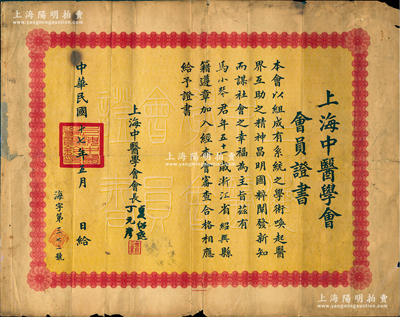 上海陽明拍賣
上海中醫學會
會員證書
本會以組成有系統之學術喚起醫
界互助之精神昌明國粹闡發新知
而謀社會之幸福為主旨茲有
馬小琴君年五十 歲浙江省紹興縣
籍遵章加入經本會審查合格相應
給予證書
上海中醫學會會長
丁元彥
夏紹庭
中華民國十七年五月 日給
海字第三 二號
上海陽明拍賣